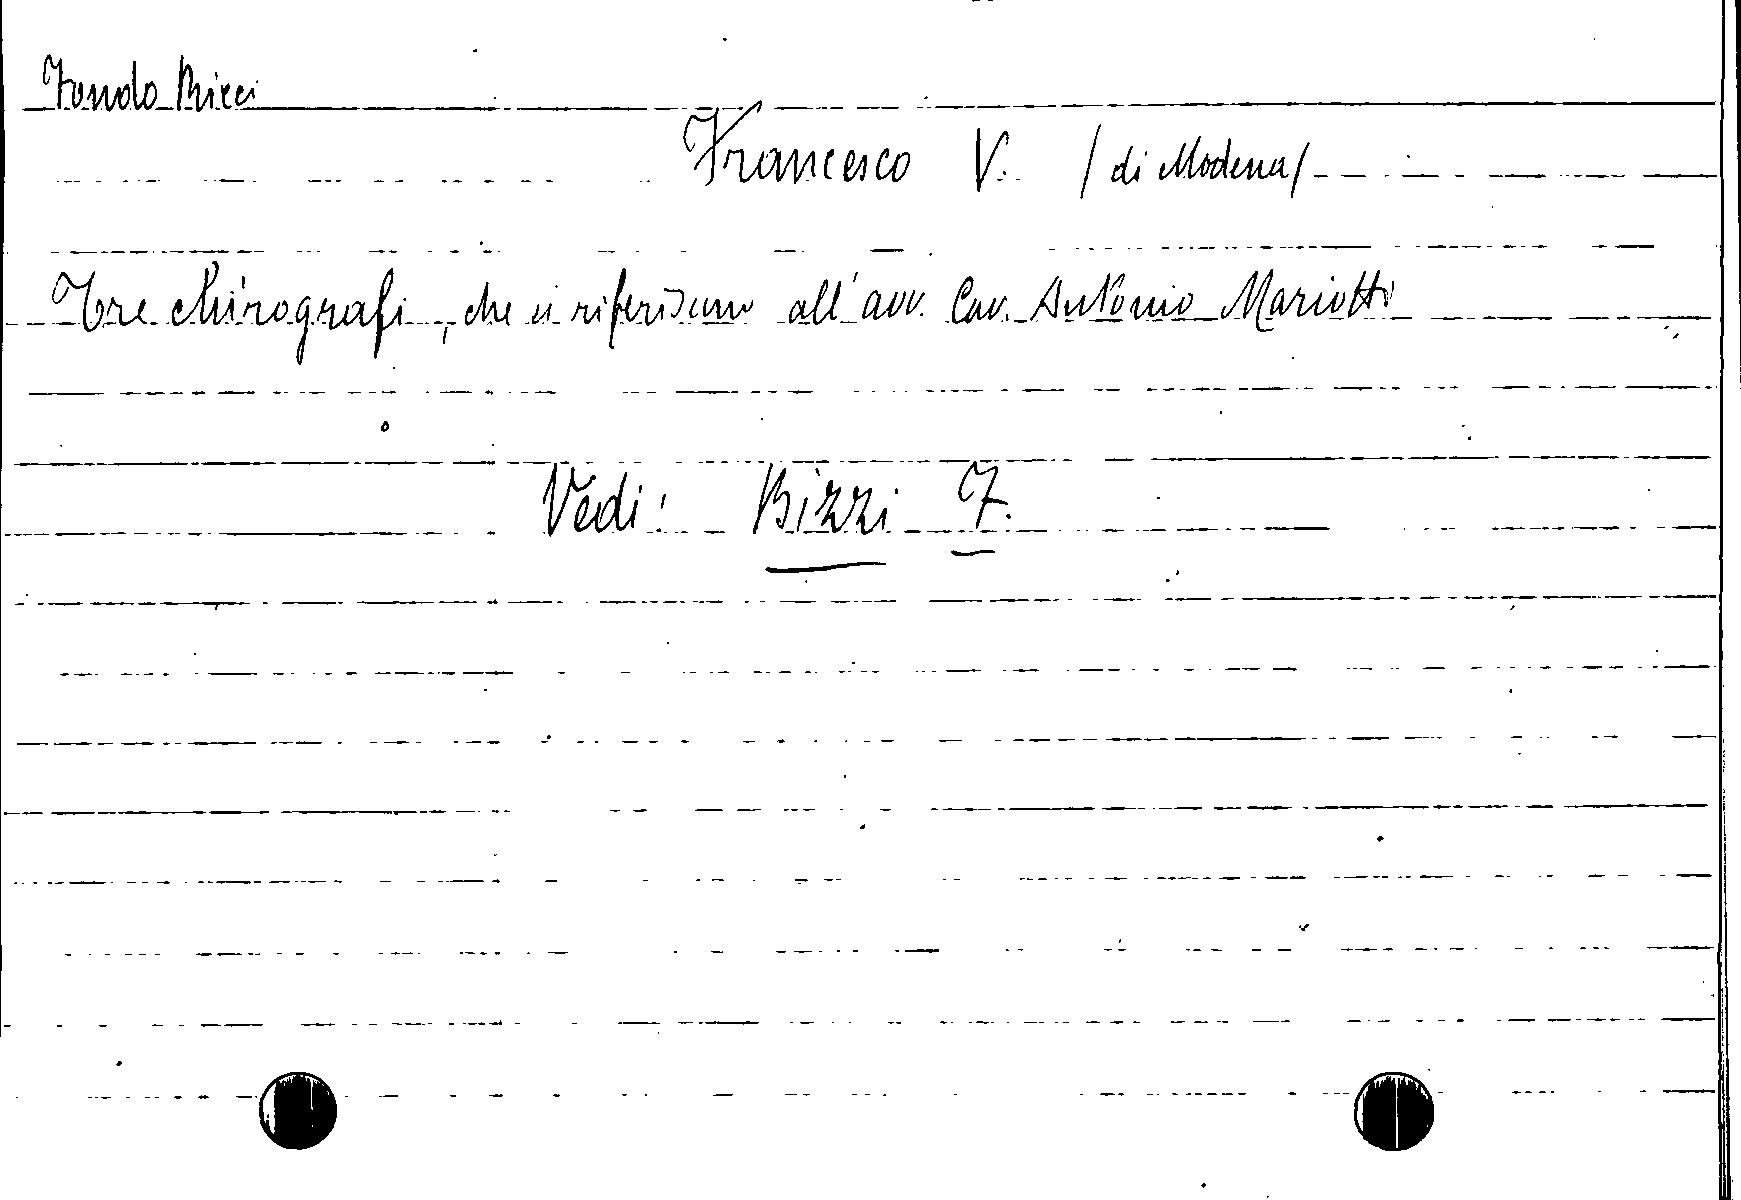 Fondo Ricci
Francesco V. /di Modena/
Tre chirografi, che si riferiscono all'avv. Cav. Antonio Mariotti
Vedi: Bizzi F.